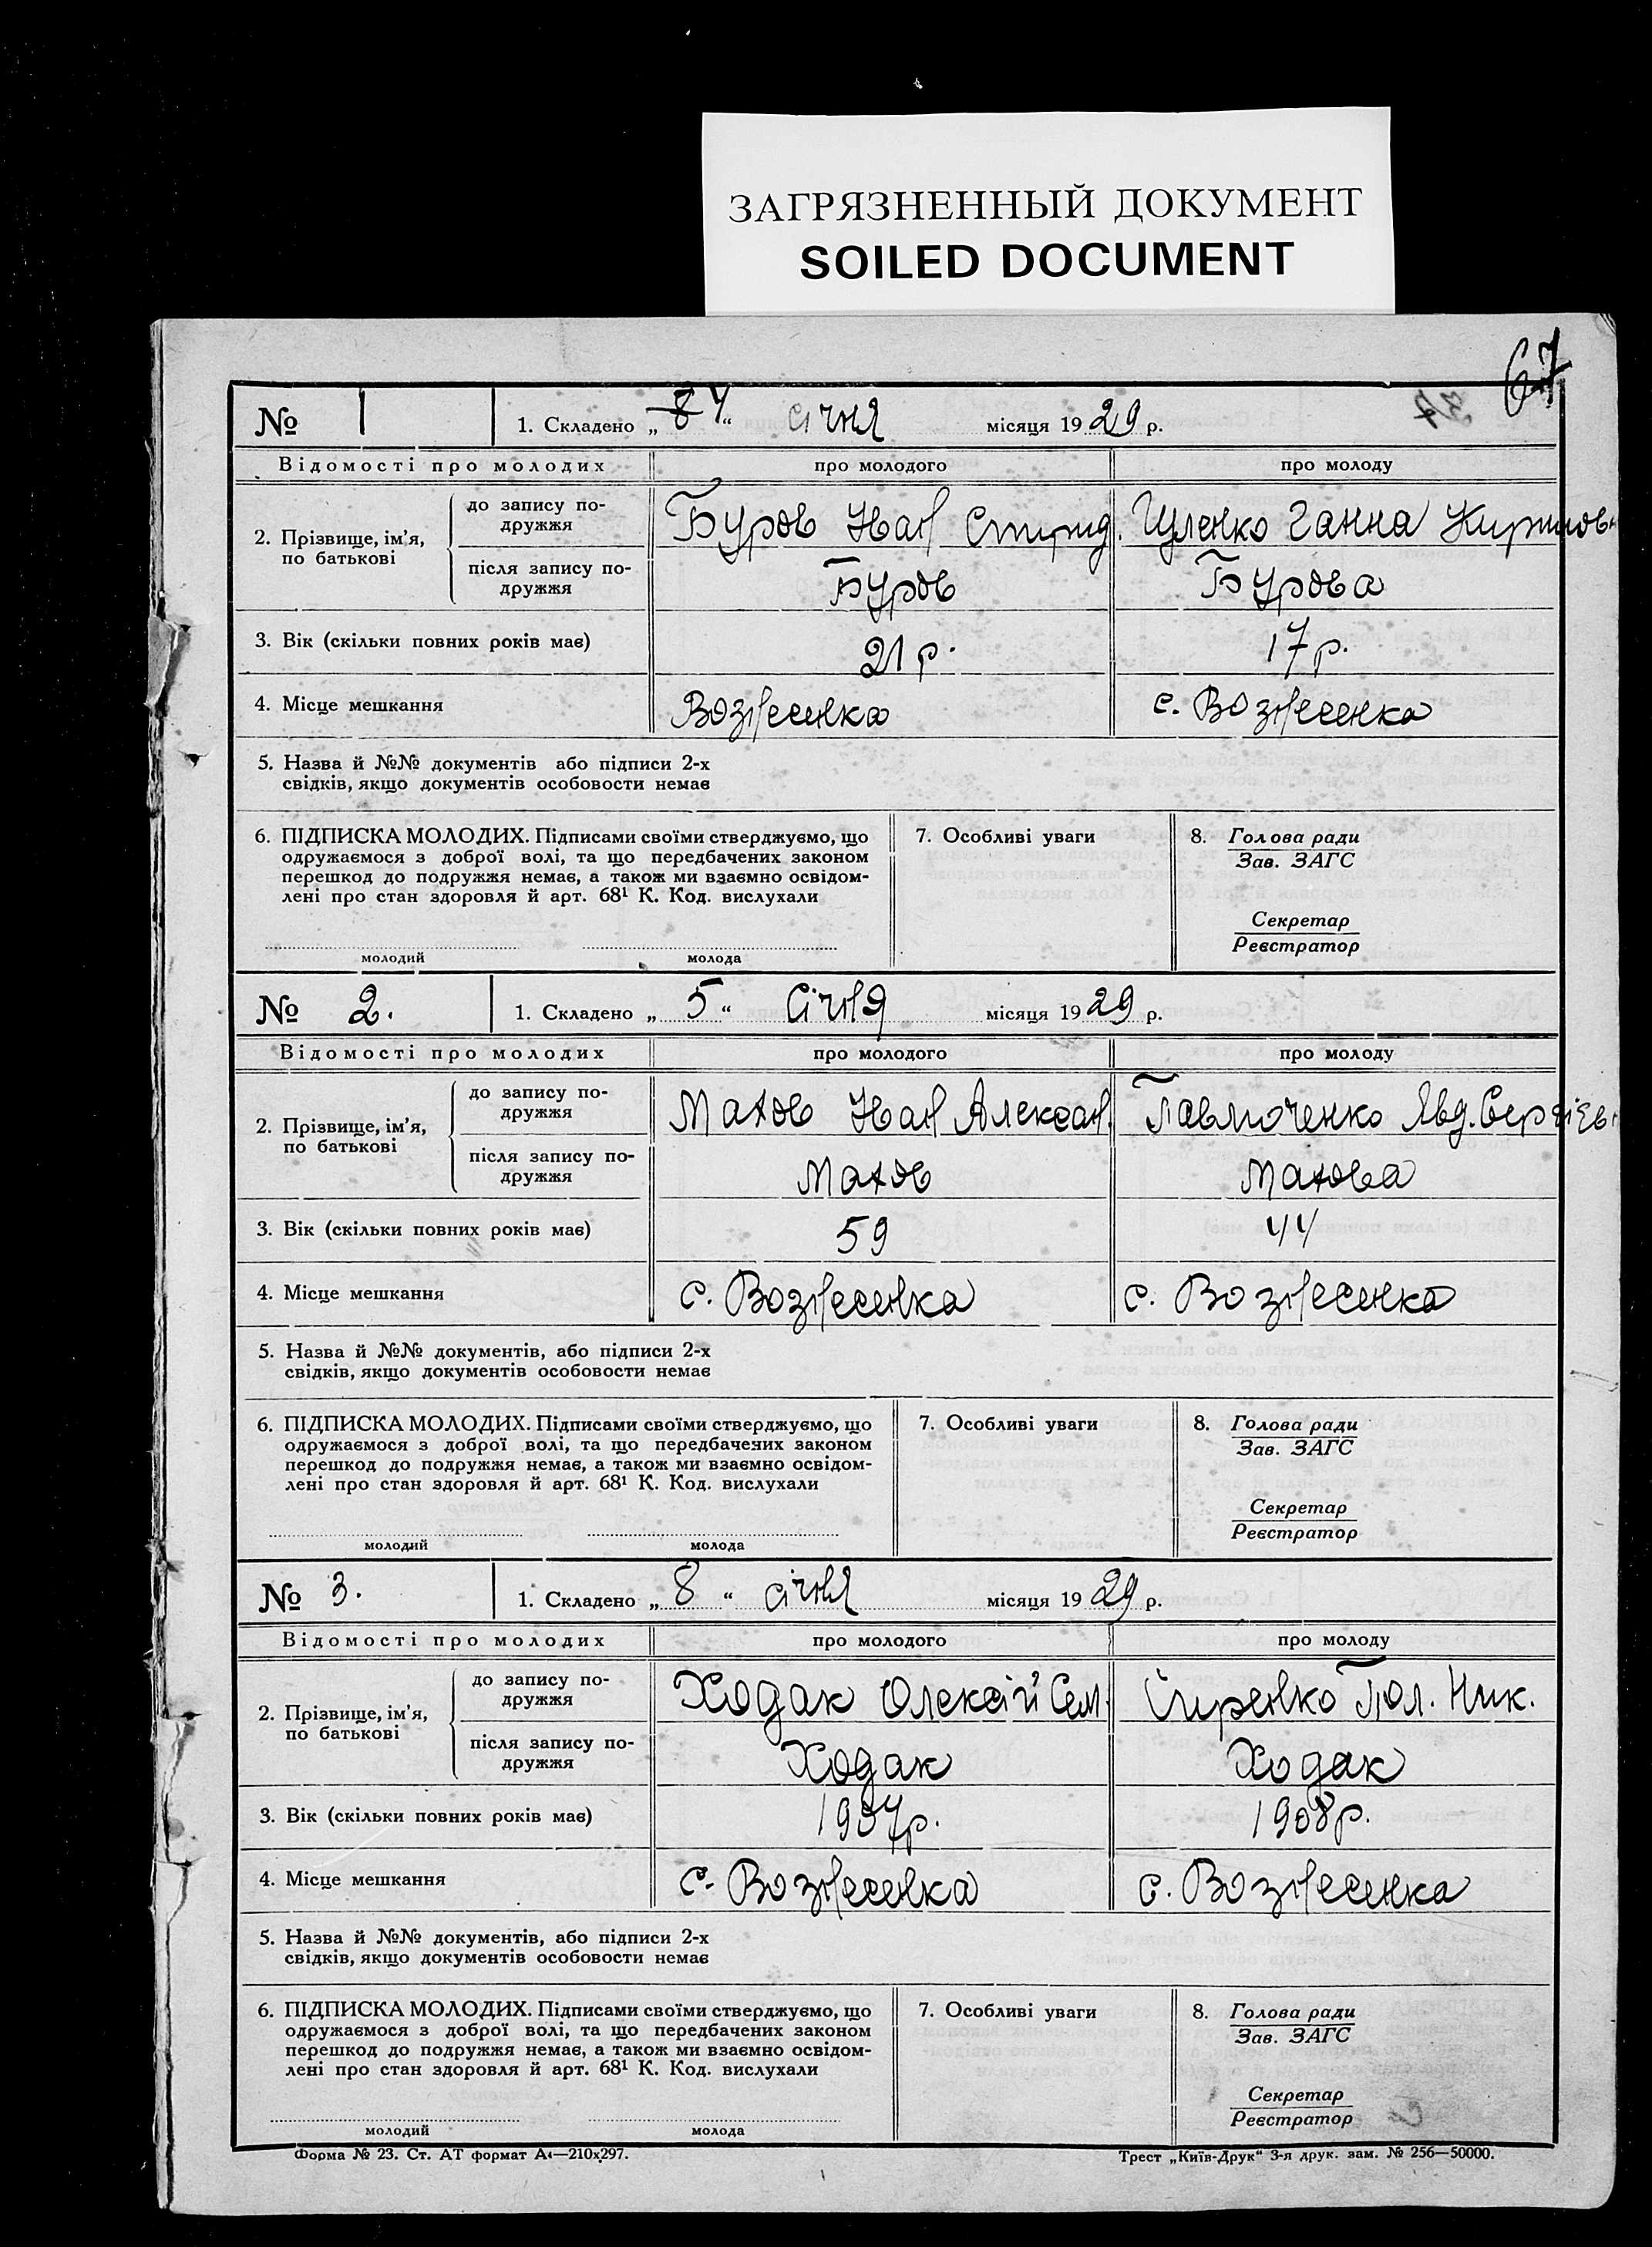 ЗАГРЯЗНЕННЫЙ ДОКУМЕНТ
SOILED DOCUMENT
67
№ 1 1. Складено „ 4 “ січня місяця 1929 р.
Відомості про молодих про молодого про молоду
2. Прізвище, ім’я, по батькові
до запису по-
дружжя
Буров Іван Спирид. Ганна
після запису по-
дружжя
Буров Бурова
3. Вік (скільки повних років має) 21 р. 17 р.
4. Місце мешкання Вознесенка с. Вознесенка
5. Назва й №№ документів або підписи 2-х
свідків, якщо документів особовости немає
6. ПІДПИСКА МОЛОДИХ. Підписами своїми стверджуємо, що
одружаємося з доброї волі, та що передбачених законом
перешкод до подружжя немає, а також ми взаємно освідом-
лені про стан здоровля й арт. 68¹ К. Код. вислухали
молодий молода
7. Особливі уваги
8. Голова ради
Зав. ЗАГС
Секретар
Реєстратор
№ 2. 1. Складено „ 5 “ Січня місяця 1929 р.
Відомості про молодих про молодого про молоду
2. Прізвище, ім’я, по батькові
до запису по-
дружжя
Махов Іван Алексан. Павлюченко Явд. Сергіївн
після запису по-
дружжя
Махов Махова
3. Вік (скільки повних років має) 59 44
4. Місце мешкання с. Вознесенка с. Вознесенка
5. Назва й №№ документів, або підписи 2-х
свідків, якщо документів особовости немає
6. ПІДПИСКА МОЛОДИХ. Підписами своїми стверджуємо, що
одружаємося з доброї волі, та що передбачених законом
перешкод до подружжя немає, а також ми взаємно освідом-
лені про стан здоровля й арт. 68¹ К. Код. вислухали
молодий молода
7. Особливі уваги
8. Голова ради
Зав. ЗАГС
Секретар
Реєстратор
№ 3. 1. Складено „ 8 “ січня місяця 1929 р.
Відомості про молодих про молодого про молоду
2. Прізвище, ім’я, по батькові
до запису по-
дружжя
Ходак Олексій Сем. Пол. Ник.
після запису по-
дружжя
Ходак Ходак
3. Вік (скільки повних років має) 1907р. 1908р.
4. Місце мешкання с. Вознесенка с. Вознесенка
5. Назва й №№ документів, або підписи 2-х
свідків, якщо документів особовости немає
6. ПІДПИСКА МОЛОДИХ. Підписами своїми стверджуємо, що
одружаємося з доброї волі, та що передбачених законом
перешкод до подружжя немає, а також ми взаємно освідом-
лені про стан здоровля й арт. 68¹ К. Код. вислухали
молодий молода
7. Особливі уваги
8. Голова ради
Зав. ЗАГС
Секретар
Реєстратор
Форма № 23. Ст. АТ формат А4—210х297. Трест „Київ-Друк“ 3-я друк. зам. № 256—50000.